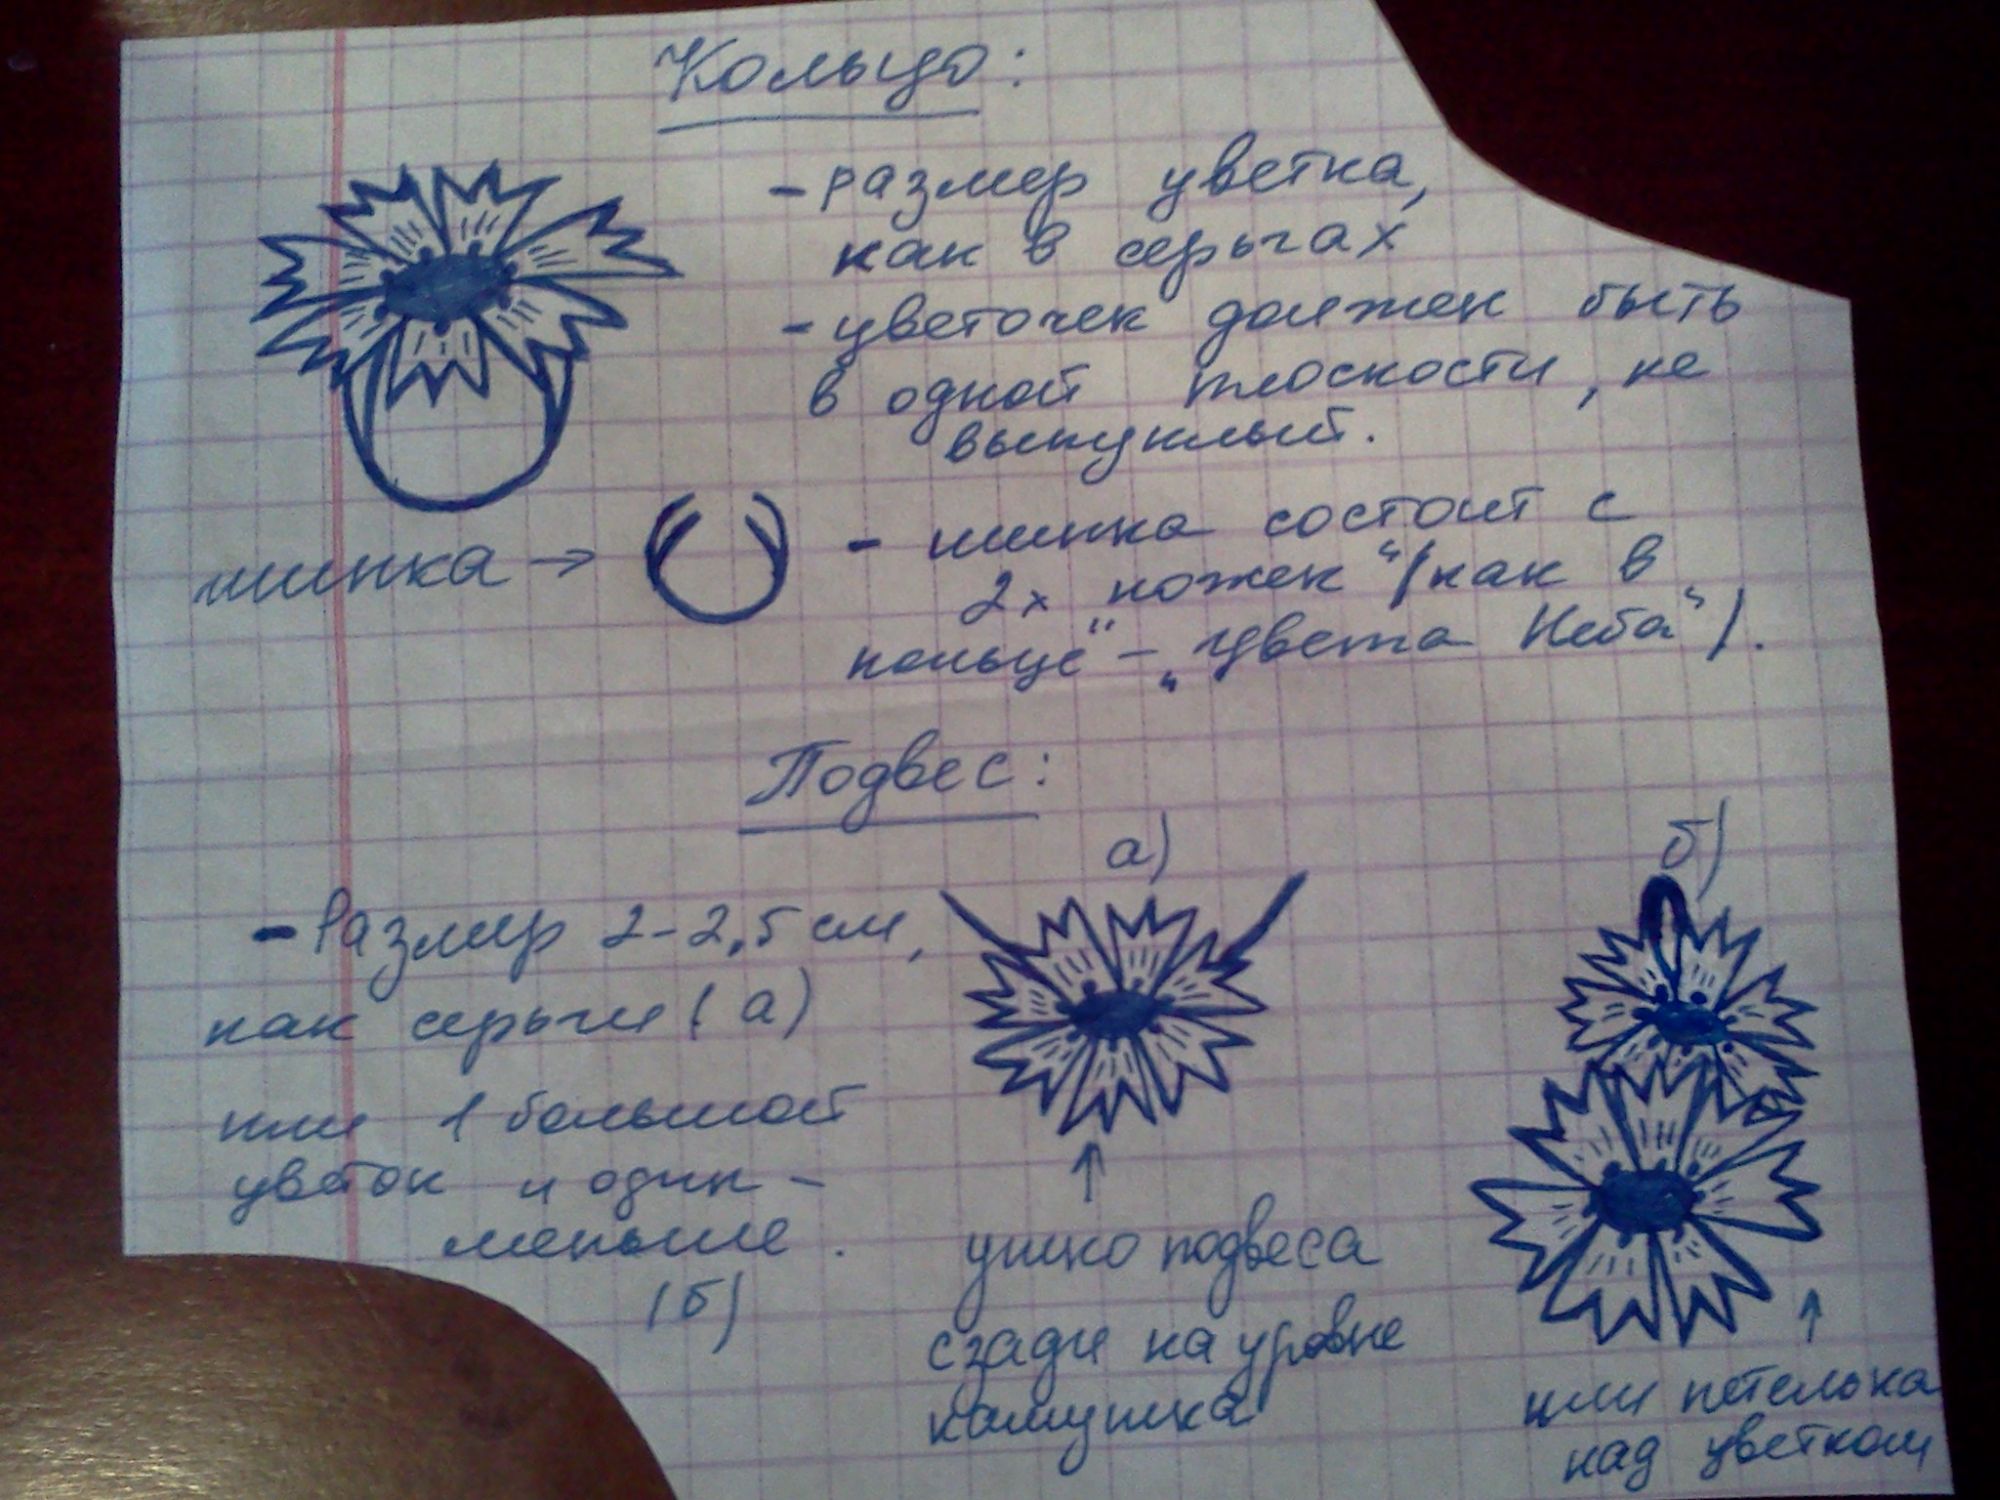 Кольцо:
- размер цветка,
как в серьгах
- цветочек должен быть
в одной плоскости, не
выпуклый.
шинка →
- шинка состоит с
2х ножек "(как в
кольце" - „Цвета Неба").
Подвес:
а)
б)
- Размер 2-2,5 см,
как серьги (а)
или 1 большой
цветок и один -
меньше.
(б)
ушко подвеса
сзади на уровне
камушка
или петелька
над цветком